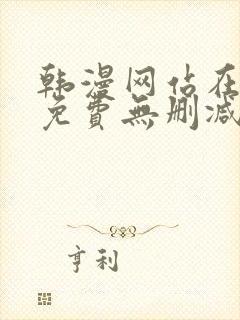 韩漫网站在
免費無删减
亨利